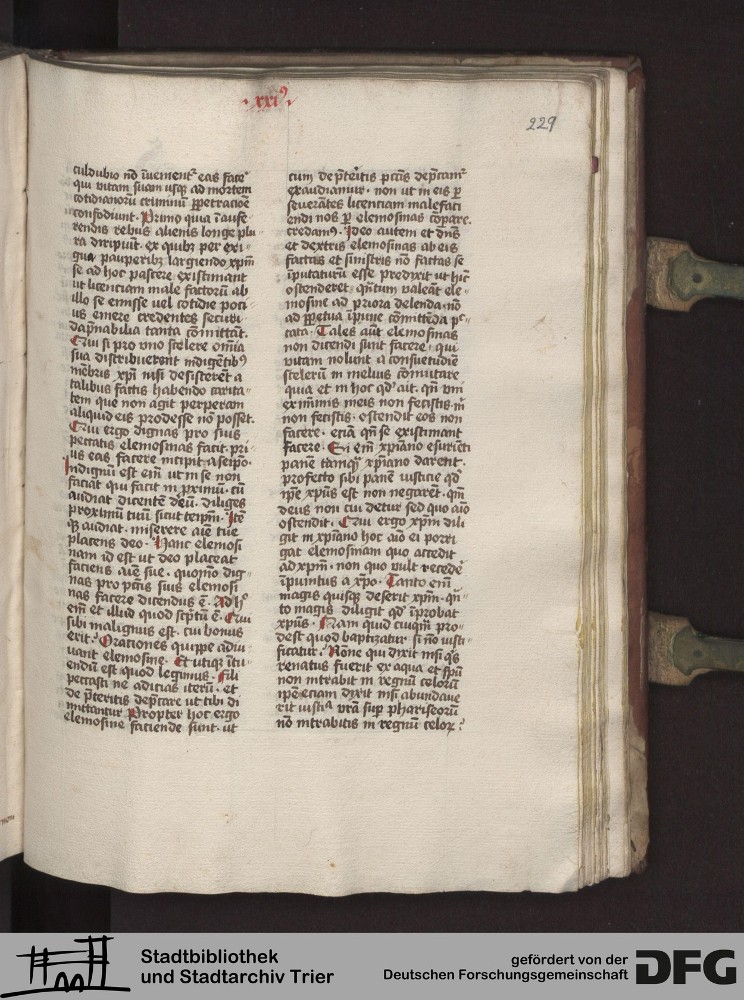 · xxi9 ·
229
culdubio nō īueniēt² eas face²
qui vitam suam usq; ad mortem
cotidianorū criminū ꝑpetracioē
confodiunt. Primo quia ī aufe
rendis rebus alienis longe plu
ra diripiūt. ex quibꝫ per exi
gua pauperibꝫ largiendo xp̄m
se ad hoc pascere existimant
ut licenciam male factorū ab
illo se emisse vel cotidie poci
us emere credentes securi
dāpnabilia tanta cōmittāt.
Qui si pro vno scelere om̄ia
sua distribuerent indigētibꝰ
mēbris xp̄i nisi desisterēt a
talibus factis habendo carita
tem que non agit perperam
aliquid eis prodesse nō posset.
Qui ergo dignas pro suis
peccatis elemosinas facit pri
us eas facere incipit a seip̄o.
Indignū est em̄ ut in se non
faciat qui facit in ꝓximū. cū
audiat dicentē deū. diliges
proximū tuū sicut teip̄m. Itē
qꝫ audiat. miserere aīe tue
placens deo. Hanc elemosi
nam id est ut deo placeat
faciens aīe sue. quomō dig
nas pro pctīs suis elemosi
nas facere dicendus ē. Ad hͦ
em̄ et illud quod scptū ē. Qui
sibi malignus est. cui bonus
erit. Orationes quippe adiu
uant elemosine. Et utique ītu
endū est quod legimus. Fili
peccasti ne adicias iterū. et
de p̄teritis dep̄care ut tibi di
mittantur Propter hoc ergo
elemosine faciende sunt. ut
cum de p̄teritis pctīs dep̄cam²
exaudiamur. non ut in eis ꝑ
seuerātes licenciam malefaci
endi nos ꝑ elemosinas cōpare.
credamꝰ. Ideo autem et dn̄s
et dextris elemosinas ab eis
factas et sinistris nō factas se
īputaturū esse predixit ut hīc
ostenderet. qn̄tum valeāt ele
mosine ad priora delenda. nō
ad ꝑpetua īpune cōmittēda pc
cata. Tales aūt elemosinas
non dicendi sunt facere. qui
vitam nolunt a consuetudīe
scelerū in melius cōmutare
quia et in hoc qd' ait. qn̄ vni
ex minimis meis non fecistis. m̄
non fecistis. ostendit eos non
facere. eciā qn̄ se existimant
facere. Si em̄ xp̄iano esuriēti
panē tamq̄ xp̄iano darent.
profecto sibi panē iusticie qd'
ip̄e xp̄us est non negarēt. qm̄
deus non cui detur sed quo aīo
ostendit. Qui ergo xp̄m dili
git in xp̄iano hoc aīo ei porri
gat elemosinam quo accedit
ad xp̄m. non quo vult recedē
īpunitus a xp̄o. Tanto em̄
magis quisq; deserit xp̄m. qn̄
to magis diligit qd' īprobat
xp̄us. Nam quid cuiq̄m pro
dest quod baptizatur si nō iusti
ficatur. Nōne qui dixit nisi q̄s
renatus fuerit ex aqua et spū
non intrabit in regnū celorū
ip̄e eciam dixit nisi abundaue
rit iusti͛a vr̄a sup̱ phariseorū
nō intrabitis in regnū celoꝝ.
Stadtbibliothek
und Stadtarchiv Trier
gefördert von der
Deutschen Forschungsgemeinschaft
DFG